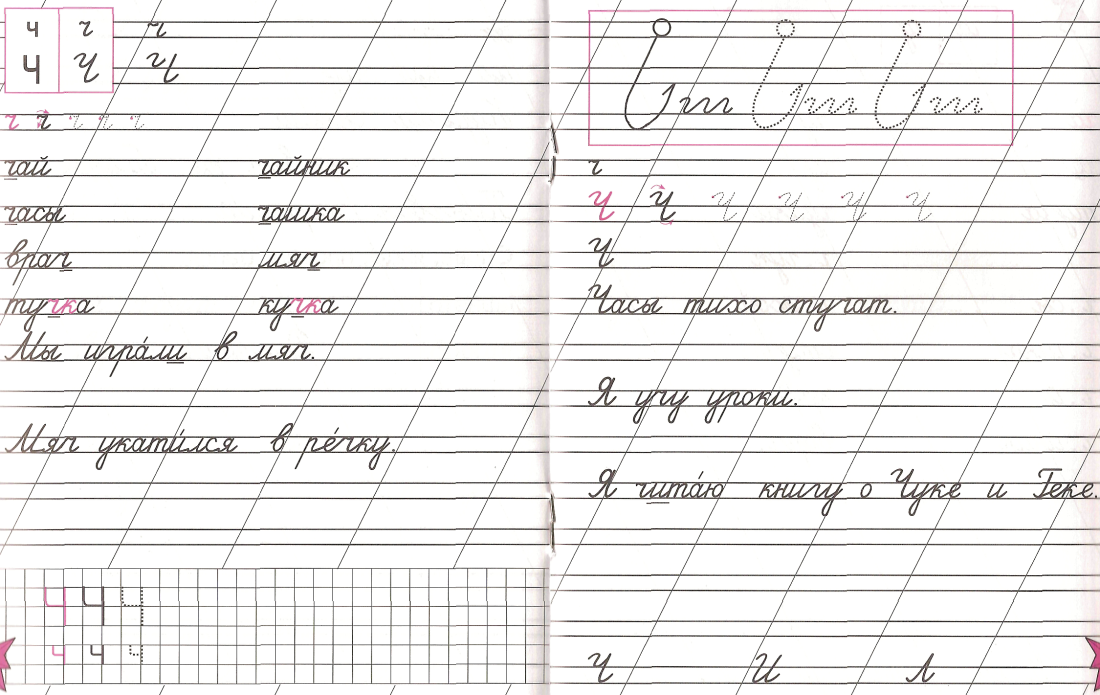 ч ч ч
Ч Ч Ч
ч ч ч ч ч
чай чайник
часы чашка
врач мяч
тучка кучка
Мы игра́ли в мяч.
Мяч укати́лся в ре́чку.
Ч Ч Ч
ч ч ч
ч
Ч Ч Ч Ч Ч Ч
Ч
Часы тихо стучат.
Я учу уроки.
Я чита́ю книгу о Чуке и Геке.
Ч И Л